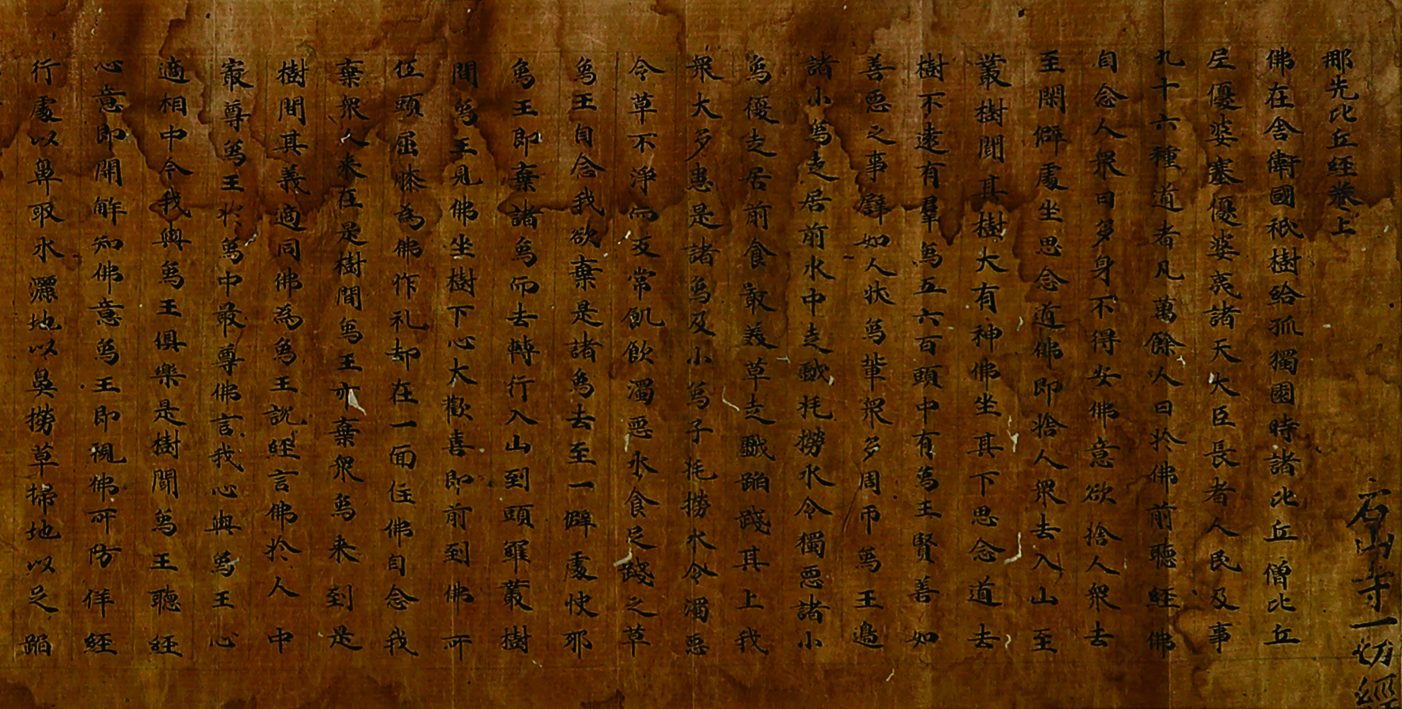 石山寺一切經
那先比丘經卷上
佛在舍衛國祇樹給孤獨園時諸比丘僧比丘
尼優婆塞優婆夷諸天大臣長者人民及事
九十六種道者凡萬餘人日於佛前聽經佛
自念人衆日多身不得安佛意欲捨人衆去
至閑僻處坐思念道佛即捨人衆去入山至
叢樹間其樹大有神佛坐其下思念道去
樹不遠有羣象五六百頭中有象王賢善知
善惡之事譬如人狀象輩衆多周帀象王邊
諸小象走居前水中走戲托撈水令獨惡諸小
象復走居前食噉美草走戲蹈踐其上我
衆大多患是諸象及小象子托撈水令濁惡
令草不淨而反常飢飲濁惡水食足踐之草
象王自念我欲棄是諸象去至一僻處快耶
象王即棄諸象而去轉行入山到頭羅叢樹
間象王見佛坐樹下心大歡喜即前到佛所
伍頭屈膝為佛作礼却在一面住佛自念我
棄衆人来在是樹間象王亦棄衆象来到是
樹間其義適同佛為象王說經言佛於人中
寂尊象王於象中最尊佛言我心與象王心
適相中令我與象王俱樂是樹間象王聽經
心意即開解知佛意象王即視佛所防佯經
行處以鼻取水灑地以鼻撈草掃地以足蹈